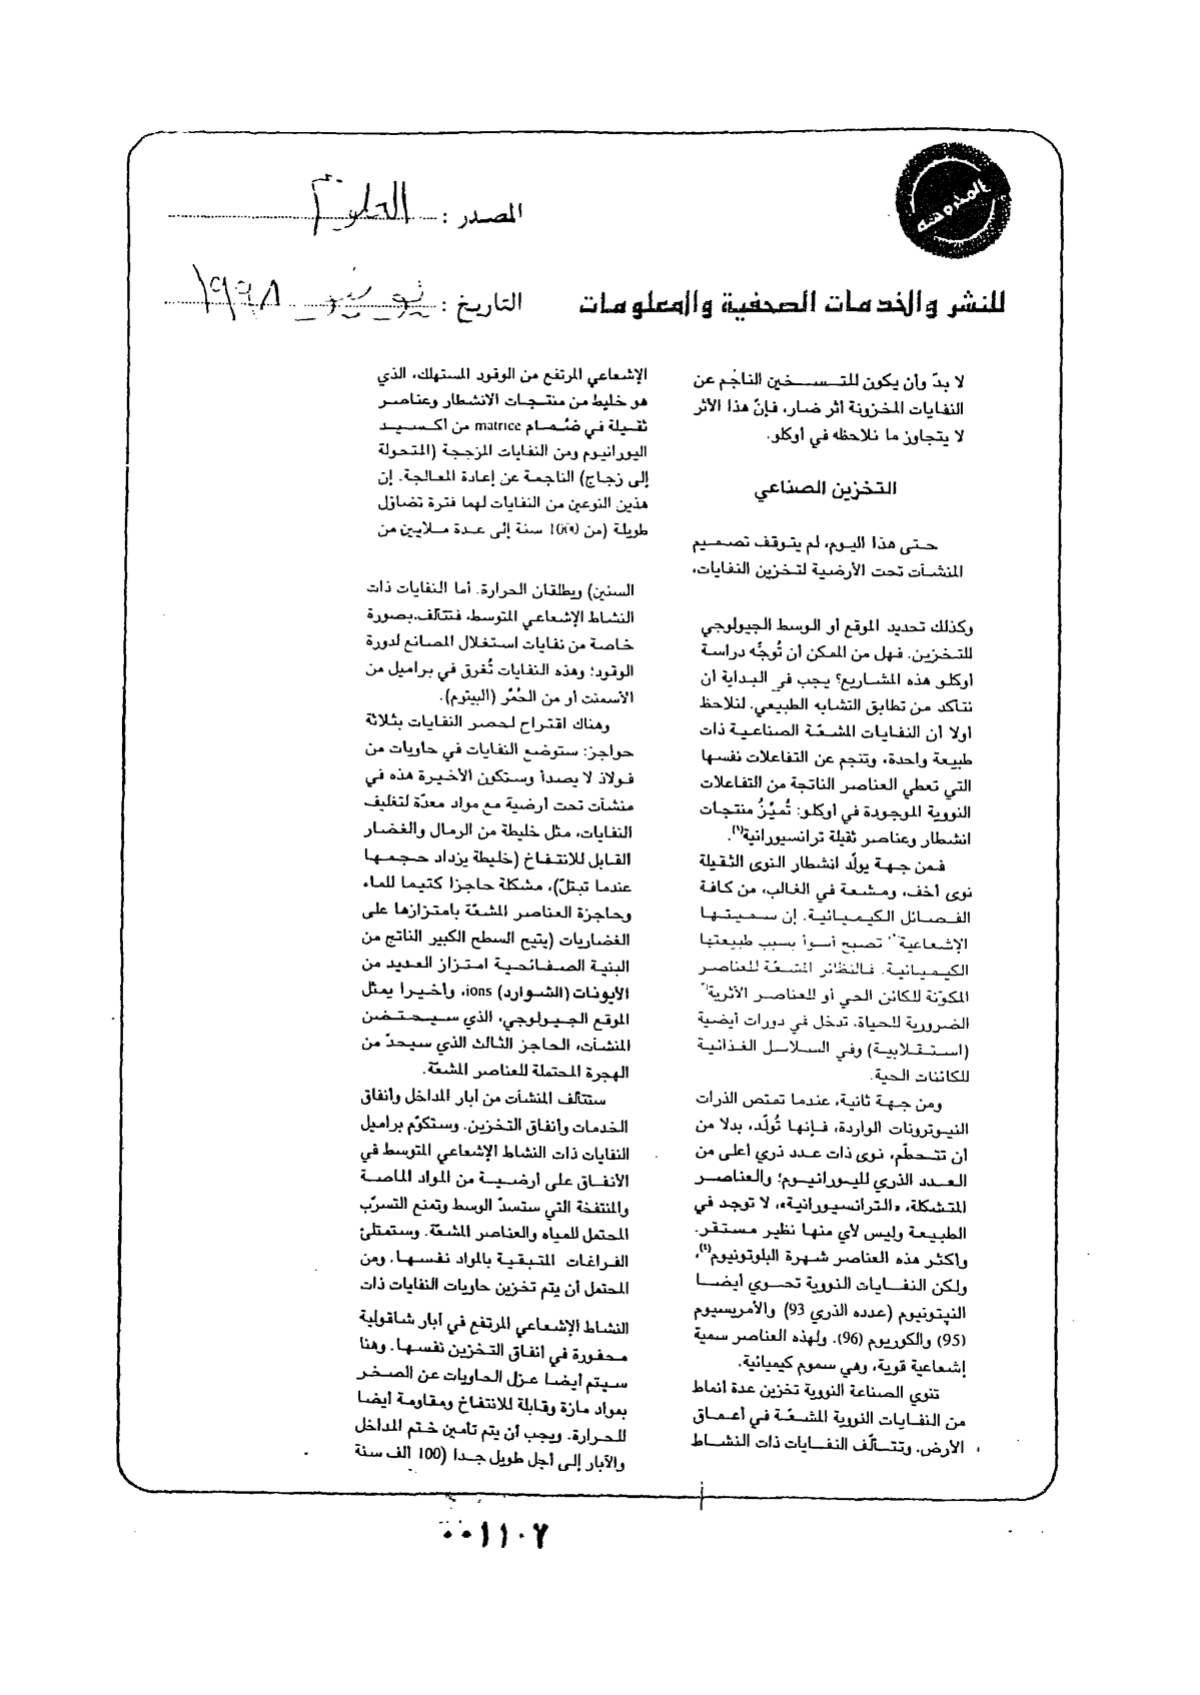 المحروسة
المصدر : العلوم
للنشر والخدمات الصحفية والمعلومات
التاريخ : يونيو ١٩٩٨
لا بدّ وأن يكون للتسخين الناجم عن
النفايات المخزونة أثر ضار، فإنّ هذا الأثر
لا يتجاوز ما نلاحظه في أوكلو.
التخزين الصناعي
حتى هذا اليوم، لم يتوقف تصميم
المنشآت تحت الأرضية لتخزين النفايات،
وكذلك تحديد الموقع أو الوسط الجيولوجي
للتخزين. فهل من الممكن أن تُوجِّه دراسة
أوكلو هذه المشاريع؟ يجب في البداية أن
نتأكد من تطابق التشابه الطبيعي. لنلاحظ
أولا أن النفايات المشعّة الصناعية ذات
طبيعة واحدة، وتنجم عن التفاعلات نفسها
التي تعطي العناصر الناتجة من التفاعلات
النووية الموجودة في أوكلو: تُميَّزُ منتجات
انشطار وعناصر ثقيلة ترانسيورانية(٦).
فمن جهة يولّد انشطار النوى الثقيلة
نوى أخف، ومشعة في الغالب، من كافة
الفصائل الكيميائية. إن سميتها
الإشعاعية تصبح أسوأ بسبب طبيعتها
الكيميائية. فالنظائر المشعّة للعناصر
المكوّنة للكائن الحي أو للعناصر الأثرية
الضرورية للحياة، تدخل في دورات أيضية
(استقلابية) وفي السلاسل الغذائية
للكائنات الحية.
ومن جهة ثانية، عندما تمتص الذرات
النيوترونات الواردة، فإنها تُولّد، بدلا من
أن تتحطّم، نوى ذات عدد ذري أعلى من
العدد الذري لليورانيوم؛ والعناصر
المتشكلة، «الترانسيورانية»، لا توجد في
الطبيعة وليس لأي منها نظير مستقر.
وأكثر هذه العناصر شهرة البلوتونيوم(٤)،
ولكن النفايات النووية تحوي أيضا
النپتونيوم (عدده الذري 93) والأمريسيوم
(95) والكوريوم (96). ولهذه العناصر سمية
إشعاعية قوية، وهي سموم كيميائية.
تنوي الصناعة النووية تخزين عدة أنماط
من النفايات النووية المشعّة في أعماق
الأرض. وتتألّف النفايات ذات النشاط
الإشعاعي المرتفع من الوقود المستهلك، الذي
هو خليط من منتجات الانشطار وعناصر
ثقيلة في ضُمام matrice من أكسيد
اليورانيوم ومن النفايات المزججة (المتحولة
إلى زجاج) الناجمة عن إعادة المعالجة. إن
هذين النوعين من النفايات لهما فترة تضاؤل
طويلة (من 1000 سنة إلى عدة ملايين من
السنين) ويطلقان الحرارة. أما النفايات ذات
النشاط الإشعاعي المتوسط، فتتألف بصورة
خاصة من نفايات استغلال المصانع لدورة
الوقود؛ وهذه النفايات تُغرق في براميل من
الأسمنت أو من الحُمَّر (البيتوم).
وهناك اقتراح لحصر النفايات بثلاثة
حواجز: ستوضع النفايات في حاويات من
فولاذ لا يصدأ وستكون الأخيرة هذه في
منشآت تحت أرضية مع مواد معدّة لتغليف
النفايات، مثل خليطة من الرمال والغضار
القابل للانتفاخ (خليطة يزداد حجمها
عندما تبتلّ)، مشكلة حاجزا كتيما للماء
وحاجزة العناصر المشعّة بامتزازها على
الغضاريات (يتيح السطح الكبير الناتج من
البنية الصفائحية امتزاز العديد من
الأيونات (الشوارد) ions، وأخيرا يمثل
الموقع الجيولوجي، الذي سيحتضن
المنشآت، الحاجز الثالث الذي سيحدّ من
الهجرة المحتملة للعناصر المشعّة.
ستتألف المنشآت من آبار المداخل وأنفاق
الخدمات وأنفاق التخزين. وستكوّم براميل
النفايات ذات النشاط الإشعاعي المتوسط في
الأنفاق على أرضية من المواد الماصة
والمنتفخة التي ستسدّ الوسط وتمنع التسرّب
المحتمل للمياه والعناصر المشعّة. وستمتلئ
الفراغات المتبقية بالمواد نفسها. ومن
المحتمل أن يتم تخزين حاويات النفايات ذات
النشاط الإشعاعي المرتفع في آبار شاقولية
محفورة في أنفاق التخزين نفسها. وهنا
سيتم أيضا عزل الحاويات عن الصخر
بمواد مازة وقابلة للانتفاخ ومقاومة أيضا
للحرارة. ويجب أن يتم تأمين ختم المداخل
والآبار إلى أجل طويل جدا (100 ألف سنة
٠٠١١٠٧